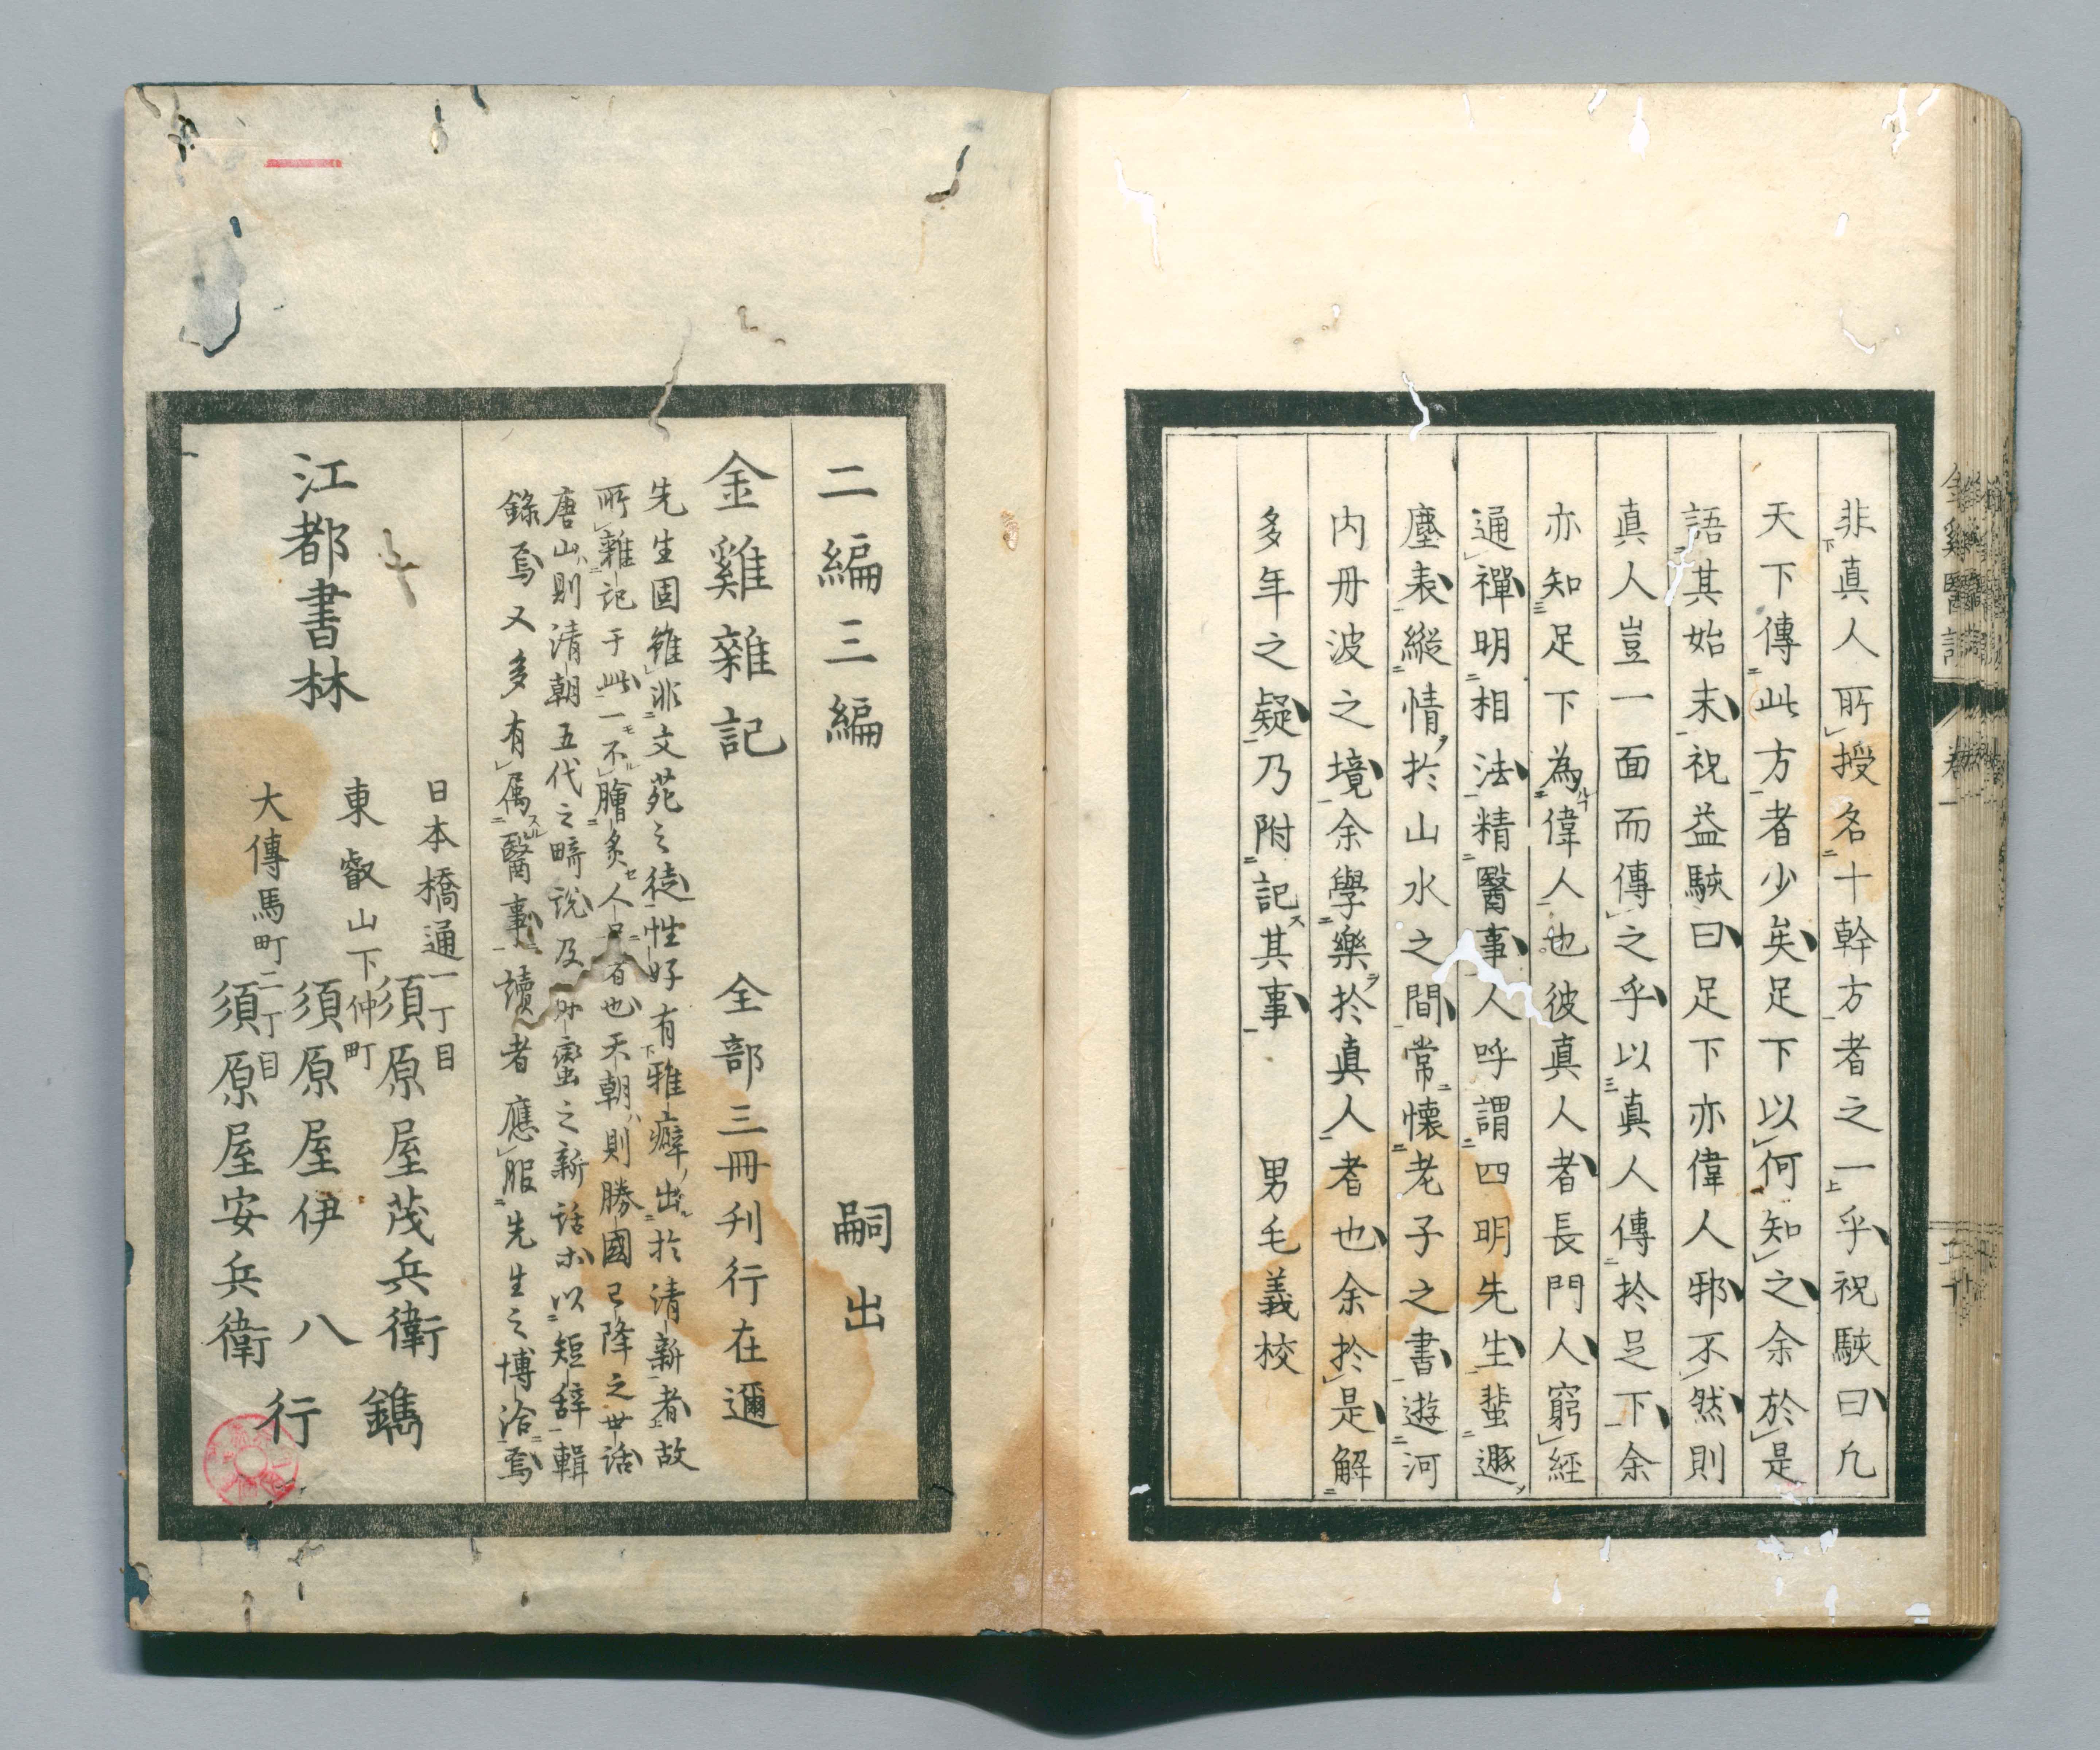 非真人所授名十幹方者之一乎祝駛曰凢
天下傳此方者少矣足下以何知之余於是
語其始末祝益駛曰足下亦偉人邪不然則
真人豈一面而傳之乎以真人傳於足下余
亦知足下為偉人也彼真人者長門人窮經
通禪明相法精醫事人呼謂四明先生蜚遯
塵表縱情於山水之間常懷老子之書遊河
内丹波之境余學樂於真人者也余於是解
多年之疑乃附記其事
男毛義校
二編三編 嗣出
金雞雜記 全部三冊刋行在邇
先生固雖非文苑之徒性好有雅癖出於清新者故
所雜記于此一不膾炙人口者也天朝則勝國已降之世話
唐山則清朝五代之畸説及外蠻之新話尒以短辞輯
錄焉又多有属醫事讀者應服先生之博洽焉
江都書林
日本橋通一丁目
須原屋茂兵衛
東叡山下仲町
須原屋伊八
大傳馬町二丁目
須原屋安兵衛
鐫行